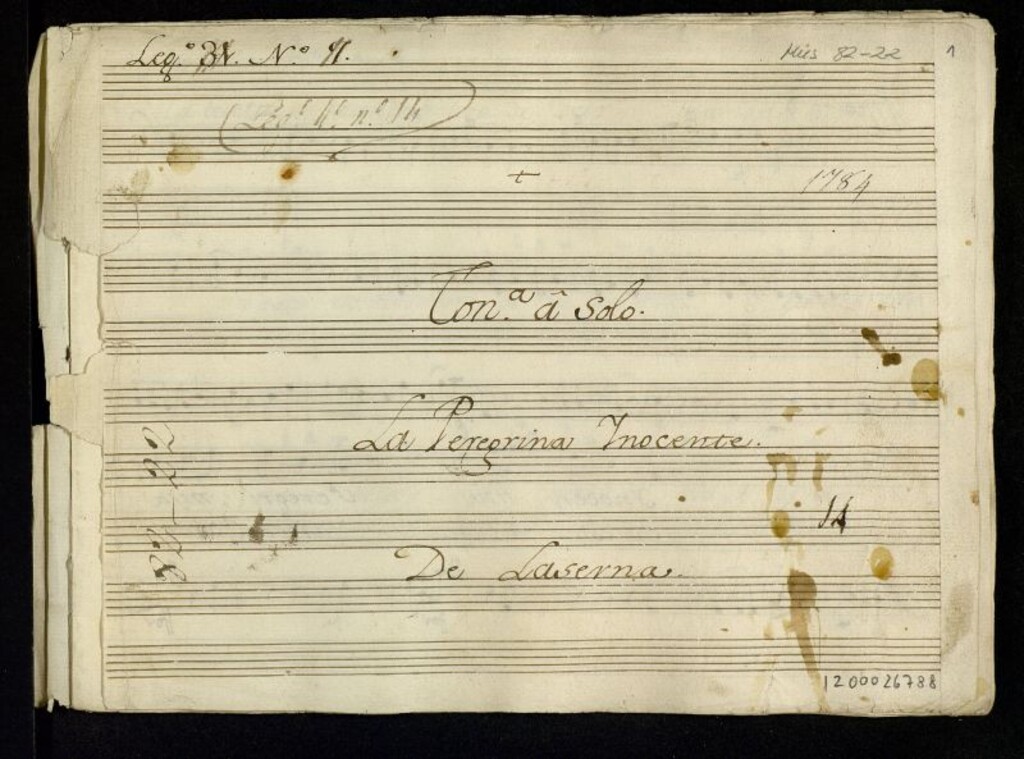 Leg.º 31. N.º 11.
Mus 82-22
1
Leg.º 4.º n.º 14
1784
Ton.ª â Solo.
La Peregrina Ynocente.
14
De Laserna.
1200026788